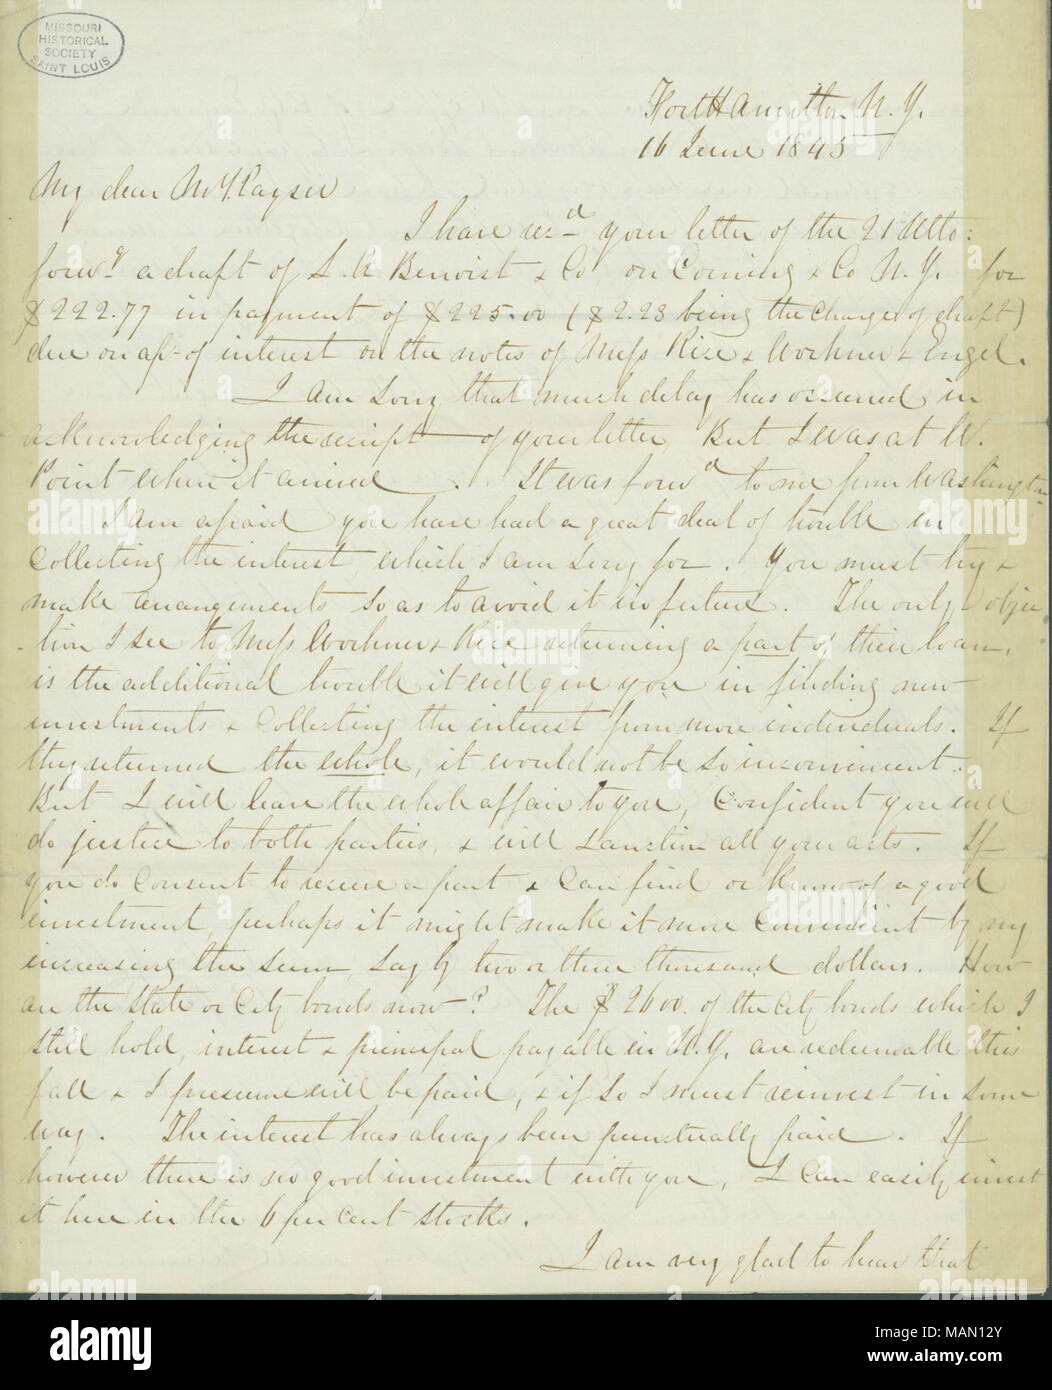 MISSOURI
HISTORICAL
SOCIETY
SAINT LOUIS
Fort Hamilton N. Y.
16 June 1845
My dear Mr Kayser
I have recd your letter of the 21 Ulto:
forwd a draft of L. A Benoist & Co, on Corning & Co N. Y. for
$222.77 in payment of $225.00 ($2.23 being the charge of draft)
due on apt of interest on the notes of Mess Rise & Wochner & Engel.
I am sorry that much delay has occurred in
acknowledging the receipt of your letter, But I was at W.
Point when it arrived. It was forwd to me from Washington
I am afraid you have had a great deal of trouble in
collecting the interest, which I am sorry for. You must try &
make arrangements so as to avoid it in future. The only objec
-tion I see to Mess Wochner & Rise returning a part of their loan,
is the additional trouble it will give you in finding new
investments & collecting the interest from more individuals. If
they returned the whole, it would not be so inconvenient.
But I will leave the whole affair to you, Confident you will
do justice to both parties, & will sanction all your acts. If
you do consent to receive a part & can find or know of a good
investment, perhaps it might make it more Convenient by my
increasing the sum, say by two or three thousand dollars. How
are the State or City bonds now? The $2600. of the City bonds which I
still hold, interest & principal payable in N. Y. are redeemable this
fall & I presume will be paid, & if so I must reinvest in some
way. The interest has always been punctually paid. If
however there is no good investment with you, I can easily invest
it here in the 6 per cent stocks.
I am very glad to hear that
alamy
www.alamy.com
Image ID: MAN12Y